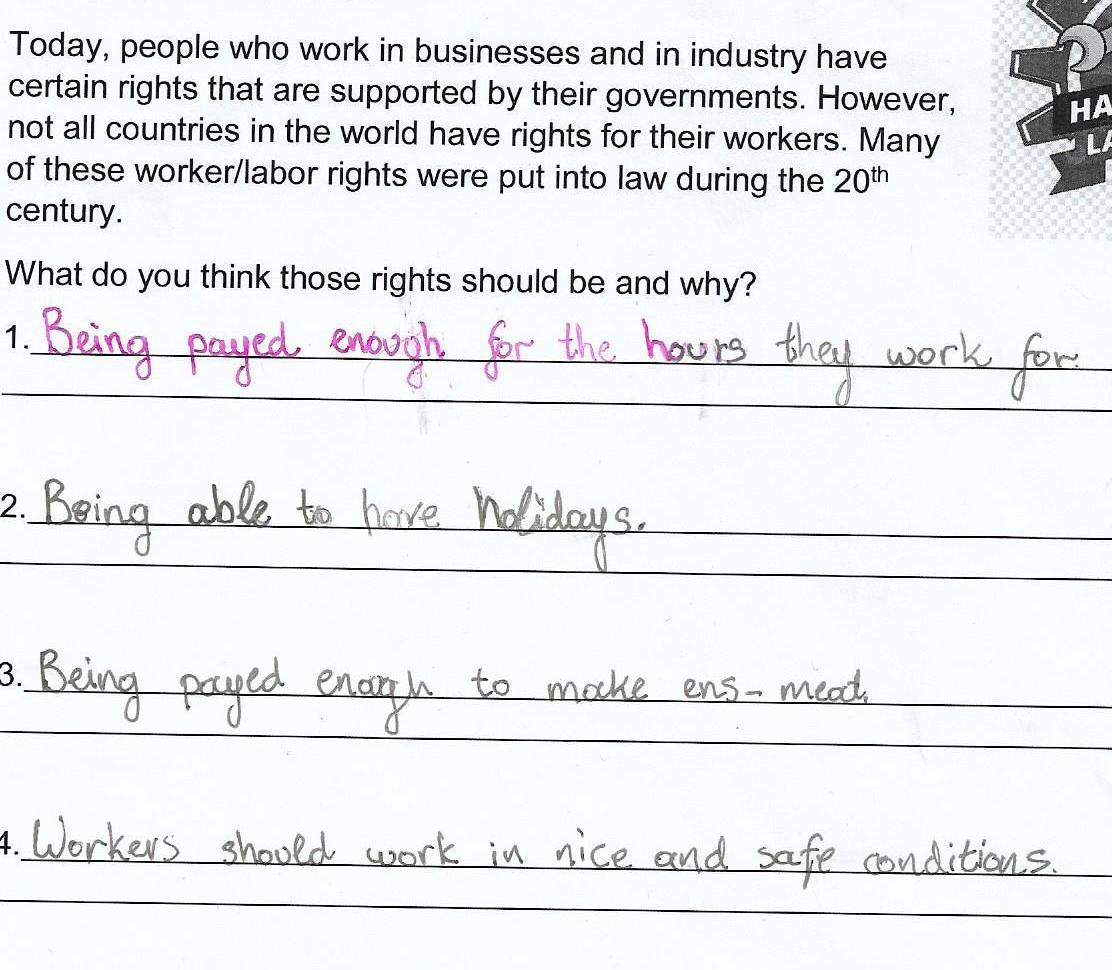 Today, people who work in businesses and in industry have
certain rights that are supported by their governments. However,
not all countries in the world have rights for their workers. Many
of these worker/labor rights were put into law during the 20th
century.
HA
LA
What do you think those rights should be and why?
1. Being payed enough for the hours they work for.
2. Being able to have holidays.
3. Being payed enargh to make ens- meat.
4. Workers should work in nice and safe conditions.